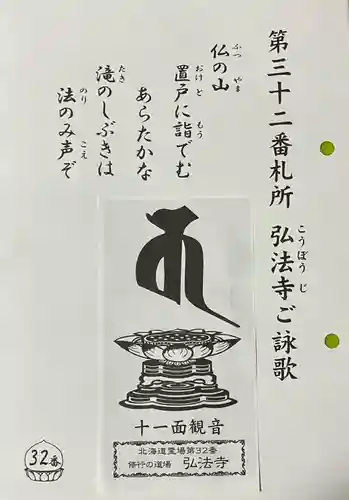 第三十二番札所 弘法寺ご詠歌
こうぼうじ
仏の山
ふつ やま
置戸に詣でむ
おけと もう
あらたかな
滝のしぶきは
たき
法のみ声ぞ
のり こえ
十一面観音
北海道霊場第32番
修行の道場 弘法寺
32番